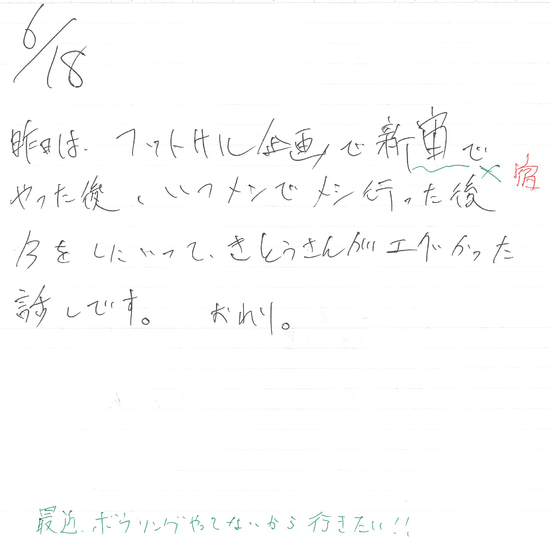 6/18
昨日は、フットサル企画で新宙で
宿
やった後、いつメンでメシ行った後
をしにいって、さとうさんがエグかった
話しです。 おわり。
最近、ボウリングやってないから行きたい!!